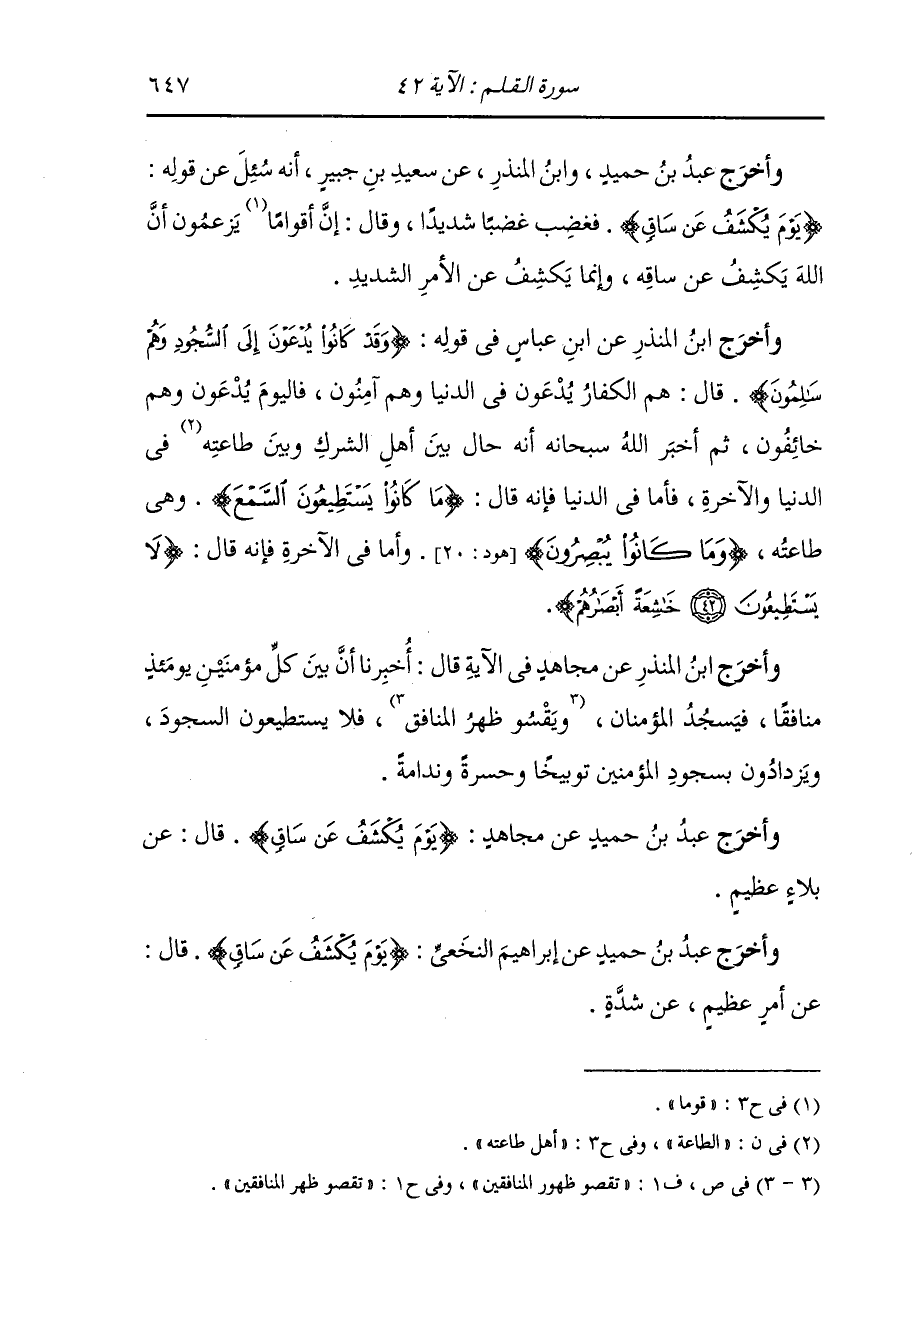 سورة القلم : الآية ٤٢ ٦٤٧
وأخرَج عبدُ بنُ حميدٍ ، وابنُ المنذرِ ، عن سعيدِ بنِ جبيرٍ ، أنه سُئِلَ عن قولِه :
﴿يَوْمَ يُكْشَفُ عَن سَاقٍ﴾ . فغضِب غضبًا شديدًا ، وقال : إنَّ أقوامًا(١) يَزعمُون أنَّ
اللهَ يَكشِفُ عن ساقِه ، وإنما يَكشِفُ عن الأمرِ الشديدِ .
وأخرَج ابنُ المنذرِ عن ابنِ عباسٍ فى قولِه : ﴿وَقَدْ كَانُوا۟ يُدْعَوْنَ إِلَى ٱلسُّجُودِ وَهُمْ
سَٰلِمُونَ﴾ . قال : هم الكفارُ يُدْعَون فى الدنيا وهم آمِنُون ، فاليومَ يُدْعَون وهم
خائِفُون ، ثم أخبَر اللهُ سبحانه أنه حال بينَ أهلِ الشركِ وبينَ طاعتِه(٢) فى
الدنيا والآخرةِ ، فأما فى الدنيا فإنه قال : ﴿مَا كَانُوا۟ يَسْتَطِيعُونَ ٱلسَّمْعَ﴾ . وهى
طاعتُه ، ﴿وَمَا كَانُوا۟ يُبْصِرُونَ﴾ [هود : ٢٠] . وأما فى الآخرةِ فإنه قال : ﴿لَا
يَسْتَطِيعُونَ ٤٢ خَٰشِعَةً أَبْصَٰرُهُمْ﴾ .
وأخرَج ابنُ المنذرِ عن مجاهدٍ فى الآيةِ قال : أُخبِرنا أنَّ بينَ كلِّ مؤمنَيْنِ يومَئذٍ
منافقًا ، فيَسجُدُ المؤمنان ، (٣ويَقْسُو ظهرُ المنافقِ٣) ، فلا يستطيعون السجودَ ،
ويَزدادُون بسجودِ المؤمنين توبيخًا وحسرةً وندامةً .
وأخرَج عبدُ بنُ حميدٍ عن مجاهدٍ : ﴿يَوْمَ يُكْشَفُ عَن سَاقٍ﴾ . قال : عن
بلاءٍ عظيمٍ .
وأخرَج عبدُ بنُ حميدٍ عن إبراهيمَ النخَعىِّ : ﴿يَوْمَ يُكْشَفُ عَن سَاقٍ﴾ . قال :
عن أمرٍ عظيمٍ ، عن شدَّةٍ .
(١) فى ح٣ : «قوما» .
(٢) فى ن : «الطاعة» ، وفى ح٣ : «أهل طاعته» .
(٣ - ٣) فى ص ، ف١ : «تقصو ظهور المنافقين» ، وفى ح١ : «تقصو ظهر المنافقين» .